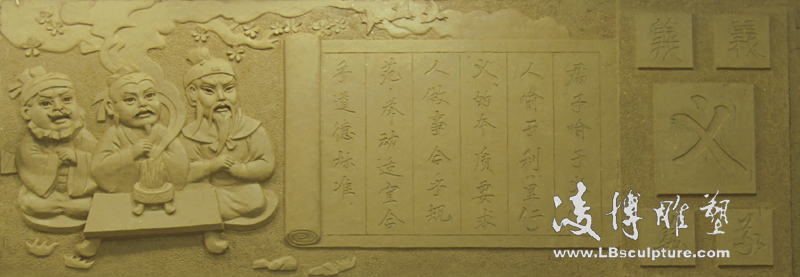 君子喻于义小
人喻于利(里仁)
义的本质要求
人做事合乎规
范举动适宜合
乎道德标准
義 義
义
凌博雕塑
www.LBsculpture.com